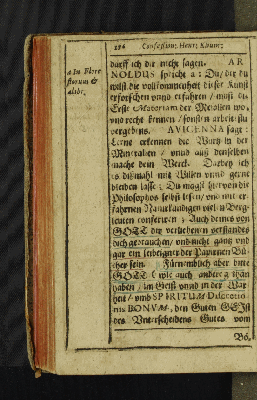 126 Confession; Henr: Kunr:
a In Flore
florum &
alibi.
darff ich dir nicht sagen. AR
NOLDUS spricht a: Du / der du
wilst die vollkommenheit dieser Kunst
erforschen vnnd erfahren / must die
Erste Materiam der Metallen wol
vnd recht kennen / sonsten arbeitstu
vergebens. AVICENNA sagt:
Lerne erkennen die Wurtz in der
Mineralien / vnnd auß denselben
mache dein Werck. Darbey ich
es dißmahl mit Willen vnnd gerne
bleiben lasse; Du magst hiervon die
Philosophos selbst lesen / vnd mit er-
fahrnen Naturkündigen
leuten conferiren; Auch deines von
GOTT dir verliehenen verstandes
dich gebrauchen / vnd nicht gantz vnd
gar ein leibeigner der Papiernen Bü-
cher sein. Fürnemblich aber bitte
GOTT (wie auch andere gethan
haben / im Geist vnnd in der War-
heit / vmb SPIRITUM Discretio-
nis BONUM, den Guten GEIst
des Vnterscheidens Gutes vom
Bö,